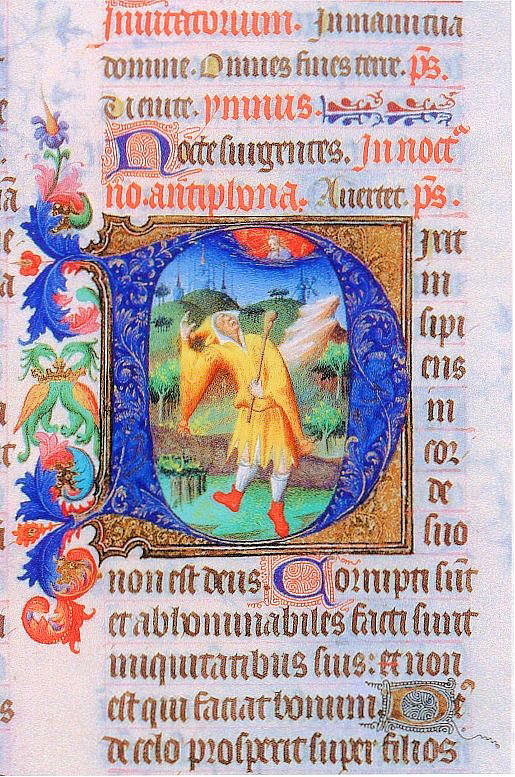 Inuitatorium. In manu tua
domine. Omnes fines terre. ps.
Uenite. ymnus.
Nocte surgentes. In noct
no. antiphona. Auertet. ps.
Dixit
in
sipi
ens
in
cor
de
suo
non est deus Corrupti sunt
et abhominabiles facti sunt
iniquitatibus suis: et non
est qui faciat bonum De
de celo prosperit super filios